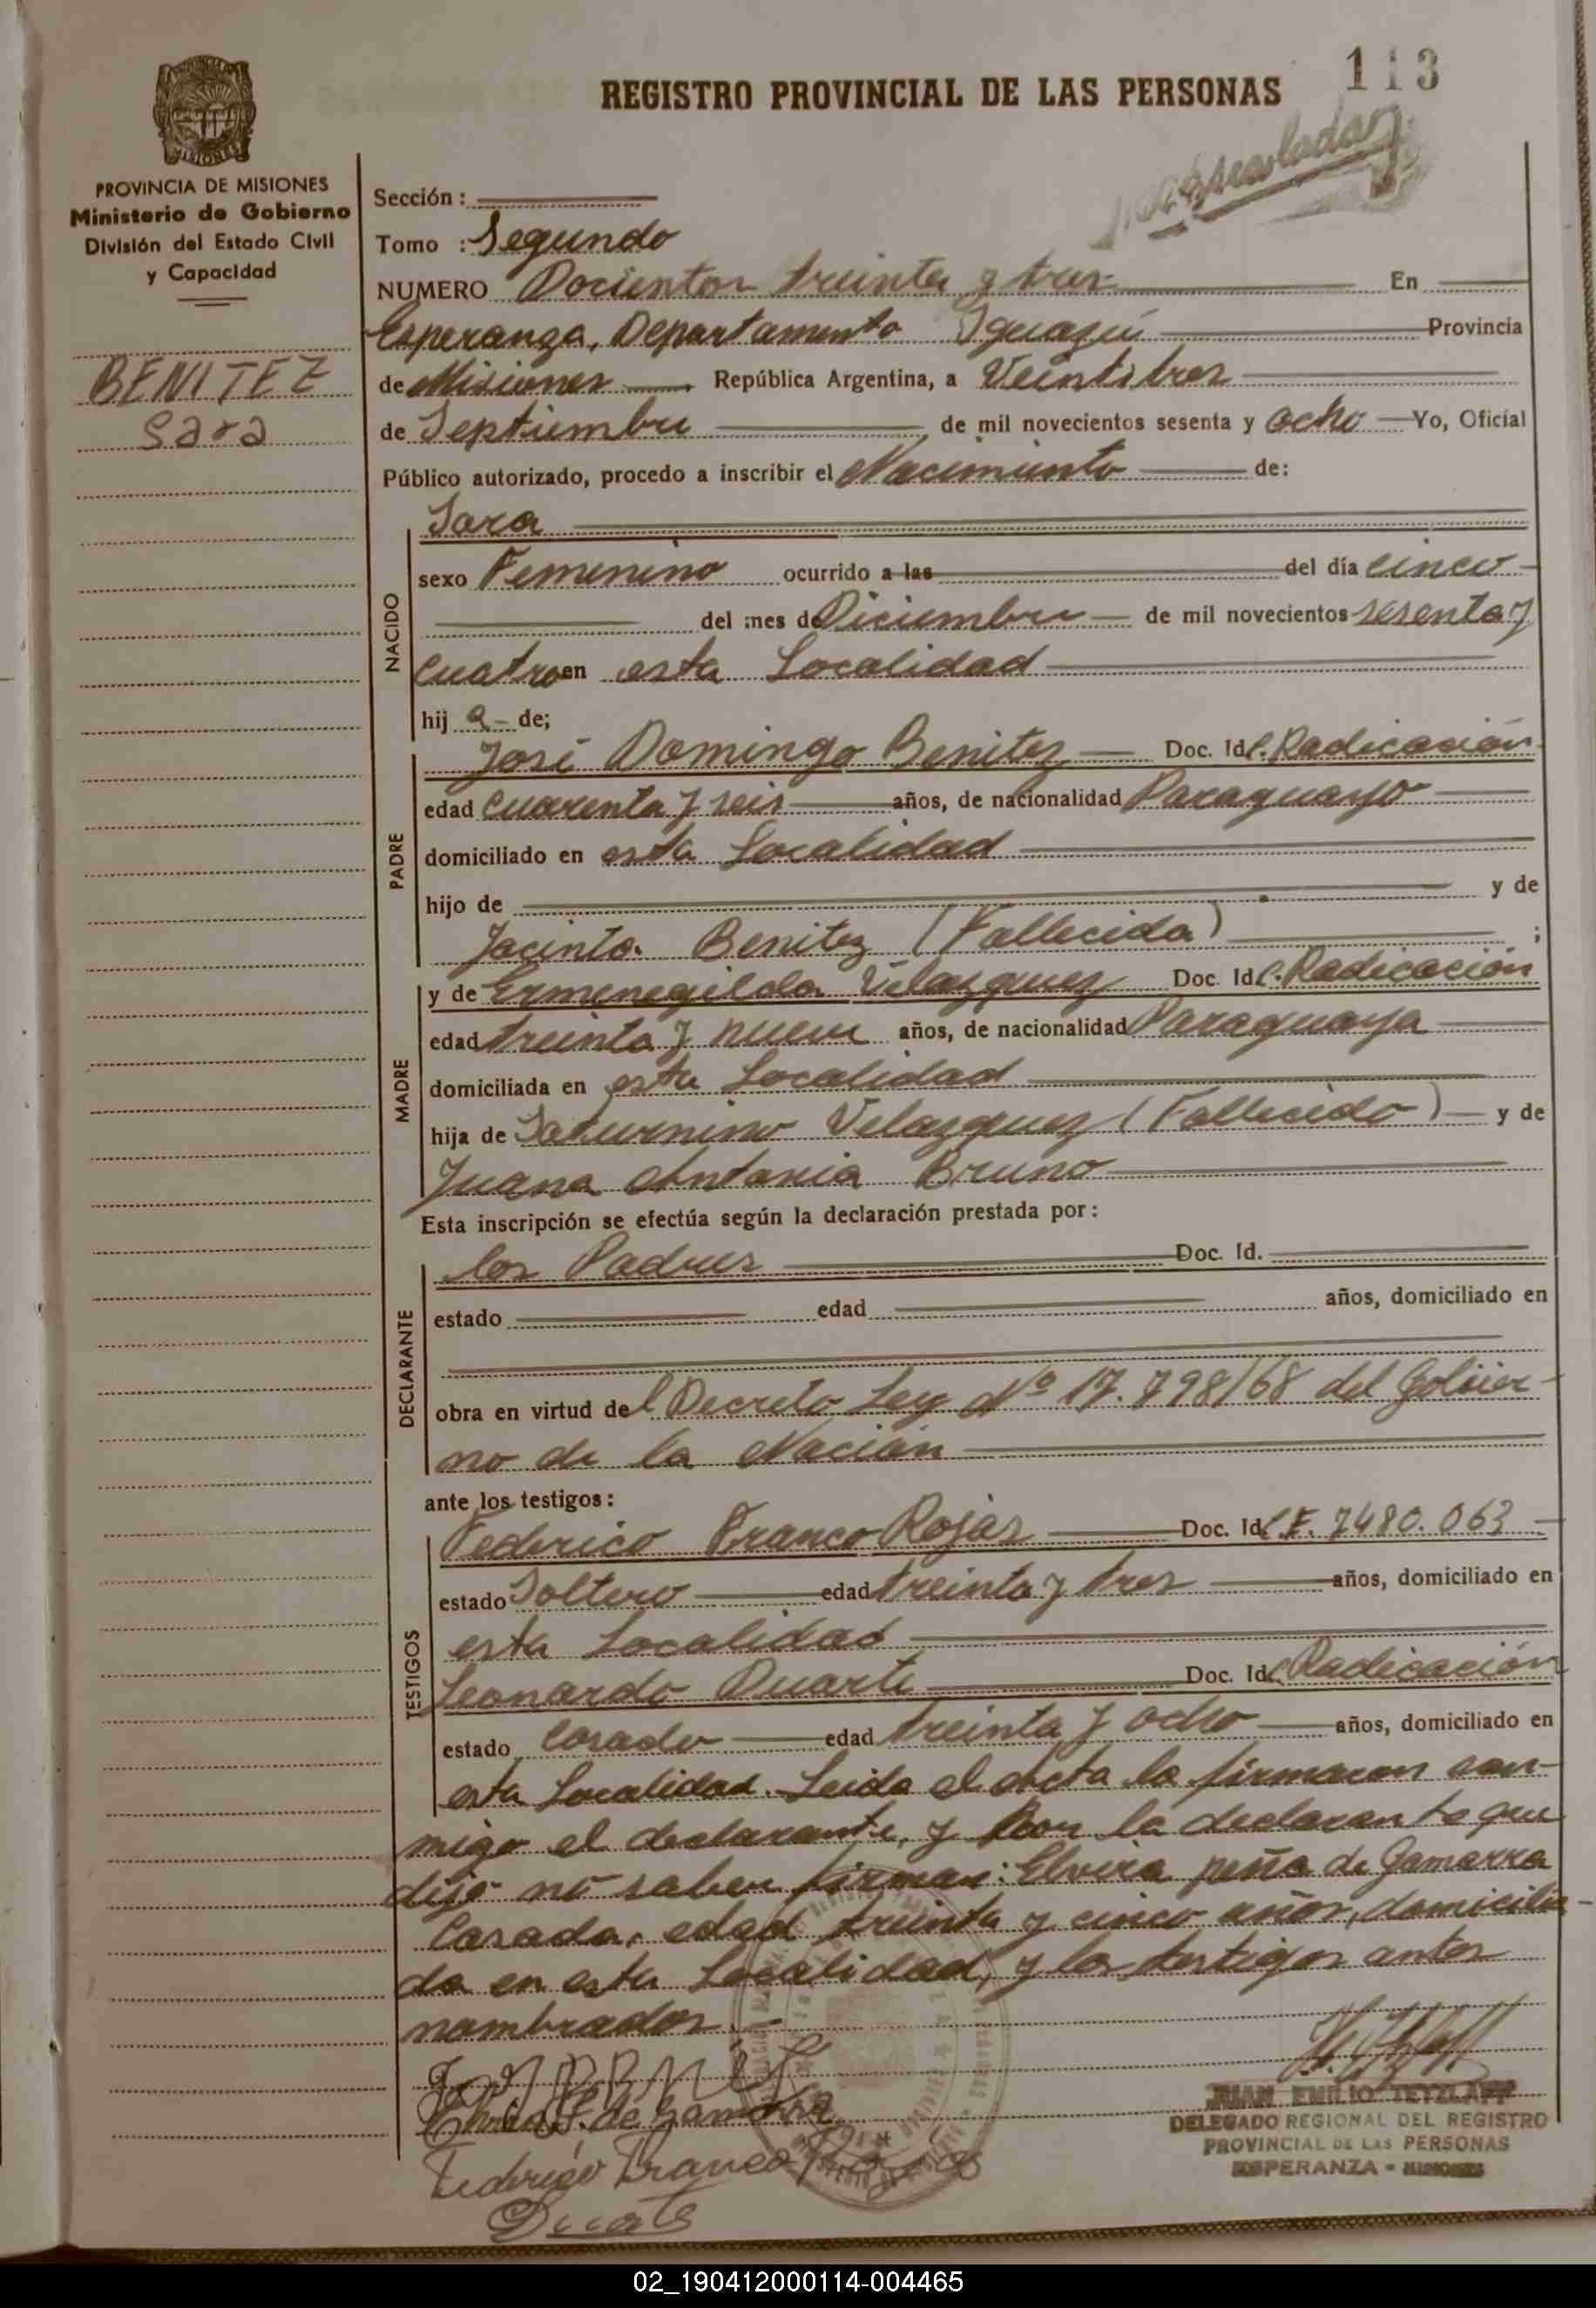 113
REGISTRO PROVINCIAL DE LAS PERSONAS
PROVINCIA DE MISIONES
Ministerio de Gobierno
División del Estado Civil
y Capacidad
BENITEZ
Sara
Sección :
Tomo : Segundo
NUMERO Docientos treinta y tres En
Esperanza, Departamento Iguazú Provincia
de Misiones República Argentina, a Veintitres
de Septiembre de mil novecientos sesenta y ocho Yo, Oficial
Público autorizado, procedo a inscribir el Nacimiento de:
NACIDO
Sara
sexo Femenino ocurrido a las del día cinco
del mes de Diciembre de mil novecientos sesenta y
cuatro en esta Localidad
hij a de;
PADRE
José Domingo Benitez Doc. Id C. Radicación
edad cuarenta y seis años, de nacionalidad Paraguayo
domiciliado en esta Localidad
hijo de y de
Jacinta Benitez (Fallecida) ;
MADRE
y de Ermenegilda Velazquez Doc. Id C. Radicación
edad treinta y nueve años, de nacionalidad Paraguaya
domiciliada en esta Localidad
hija de Saturnino Velazquez (Fallecido) y de
Juana Antonia Bruno
Esta inscripción se efectúa según la declaración prestada por :
DECLARANTE
los Padres Doc. Id.
estado edad años, domiciliado en
obra en virtud del Decreto Ley Nº 17.798/68 del Gobier-
no de la Nación
ante los testigos :
TESTIGOS
Federico Franco Rojas Doc. Id C.I. 7480.063
estado Soltero edad treinta y tres años, domiciliado en
esta Localidad
Leonardo Duarte Doc. Id C. Radicación
estado Casado edad treinta y ocho años, domiciliado en
esta Localidad. Leida el acta la firmaron con-
migo el declarante, y por la declarante que
dijo no saber firmar: Elvira peña de Gamarra
Casada, edad treinta y cinco años, domicilia-
da en esta Localidad, y los testigos antes
nombrados.-
Elvira P. de Gamarra
Federico Franco Rojas
Duarte
JUAN EMILIO TETZLAFF
DELEGADO REGIONAL DEL REGISTRO
PROVINCIAL DE LAS PERSONAS
ESPERANZA - MISIONES
02_190412000114-004465